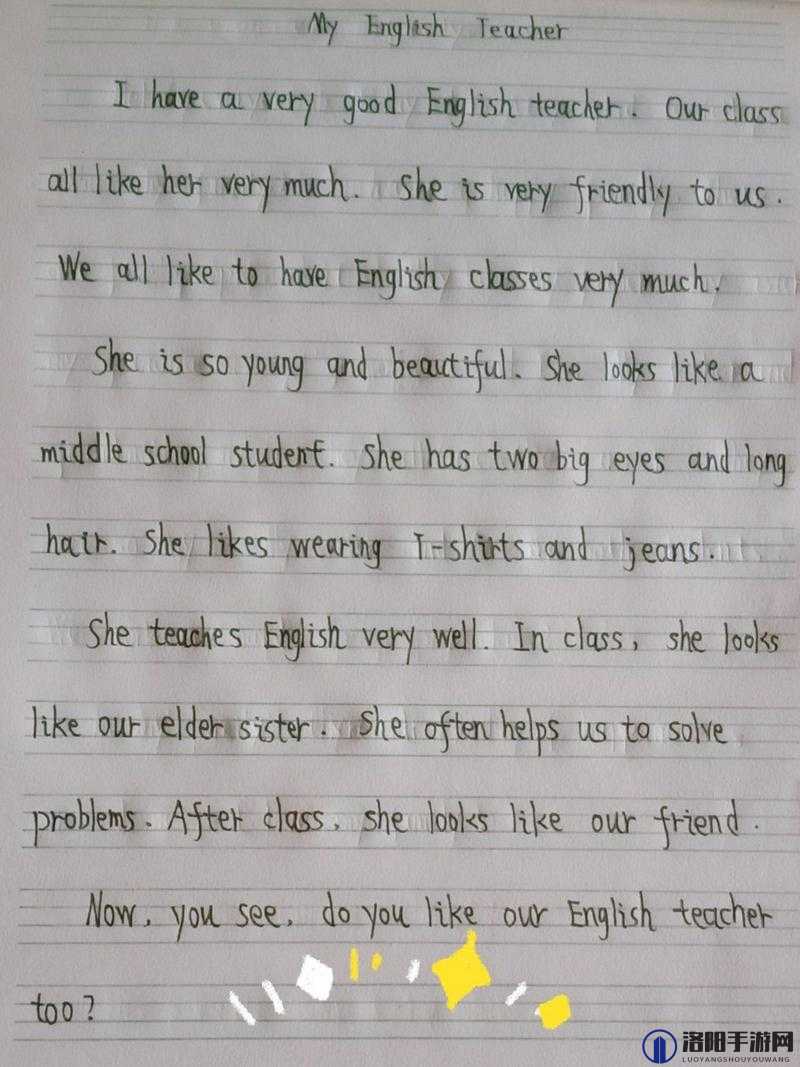 My English Teacher
I have a very good English teacher. Our class
all like her very much. She is very friendly to us.
We all like to have English classes very much.
She is so young and beautiful. She looks like a
middle school student. She has two big eyes and long
hair. She likes wearing T-shirts and jeans.
She teaches English very well. In class, she looks
like our elder sister. She often helps us to solve
problems. After class, she looks like our friend.
Now, you see, do you like our English teacher
too?
洛阳手游网
LUOYANGSHOUYOUWANG